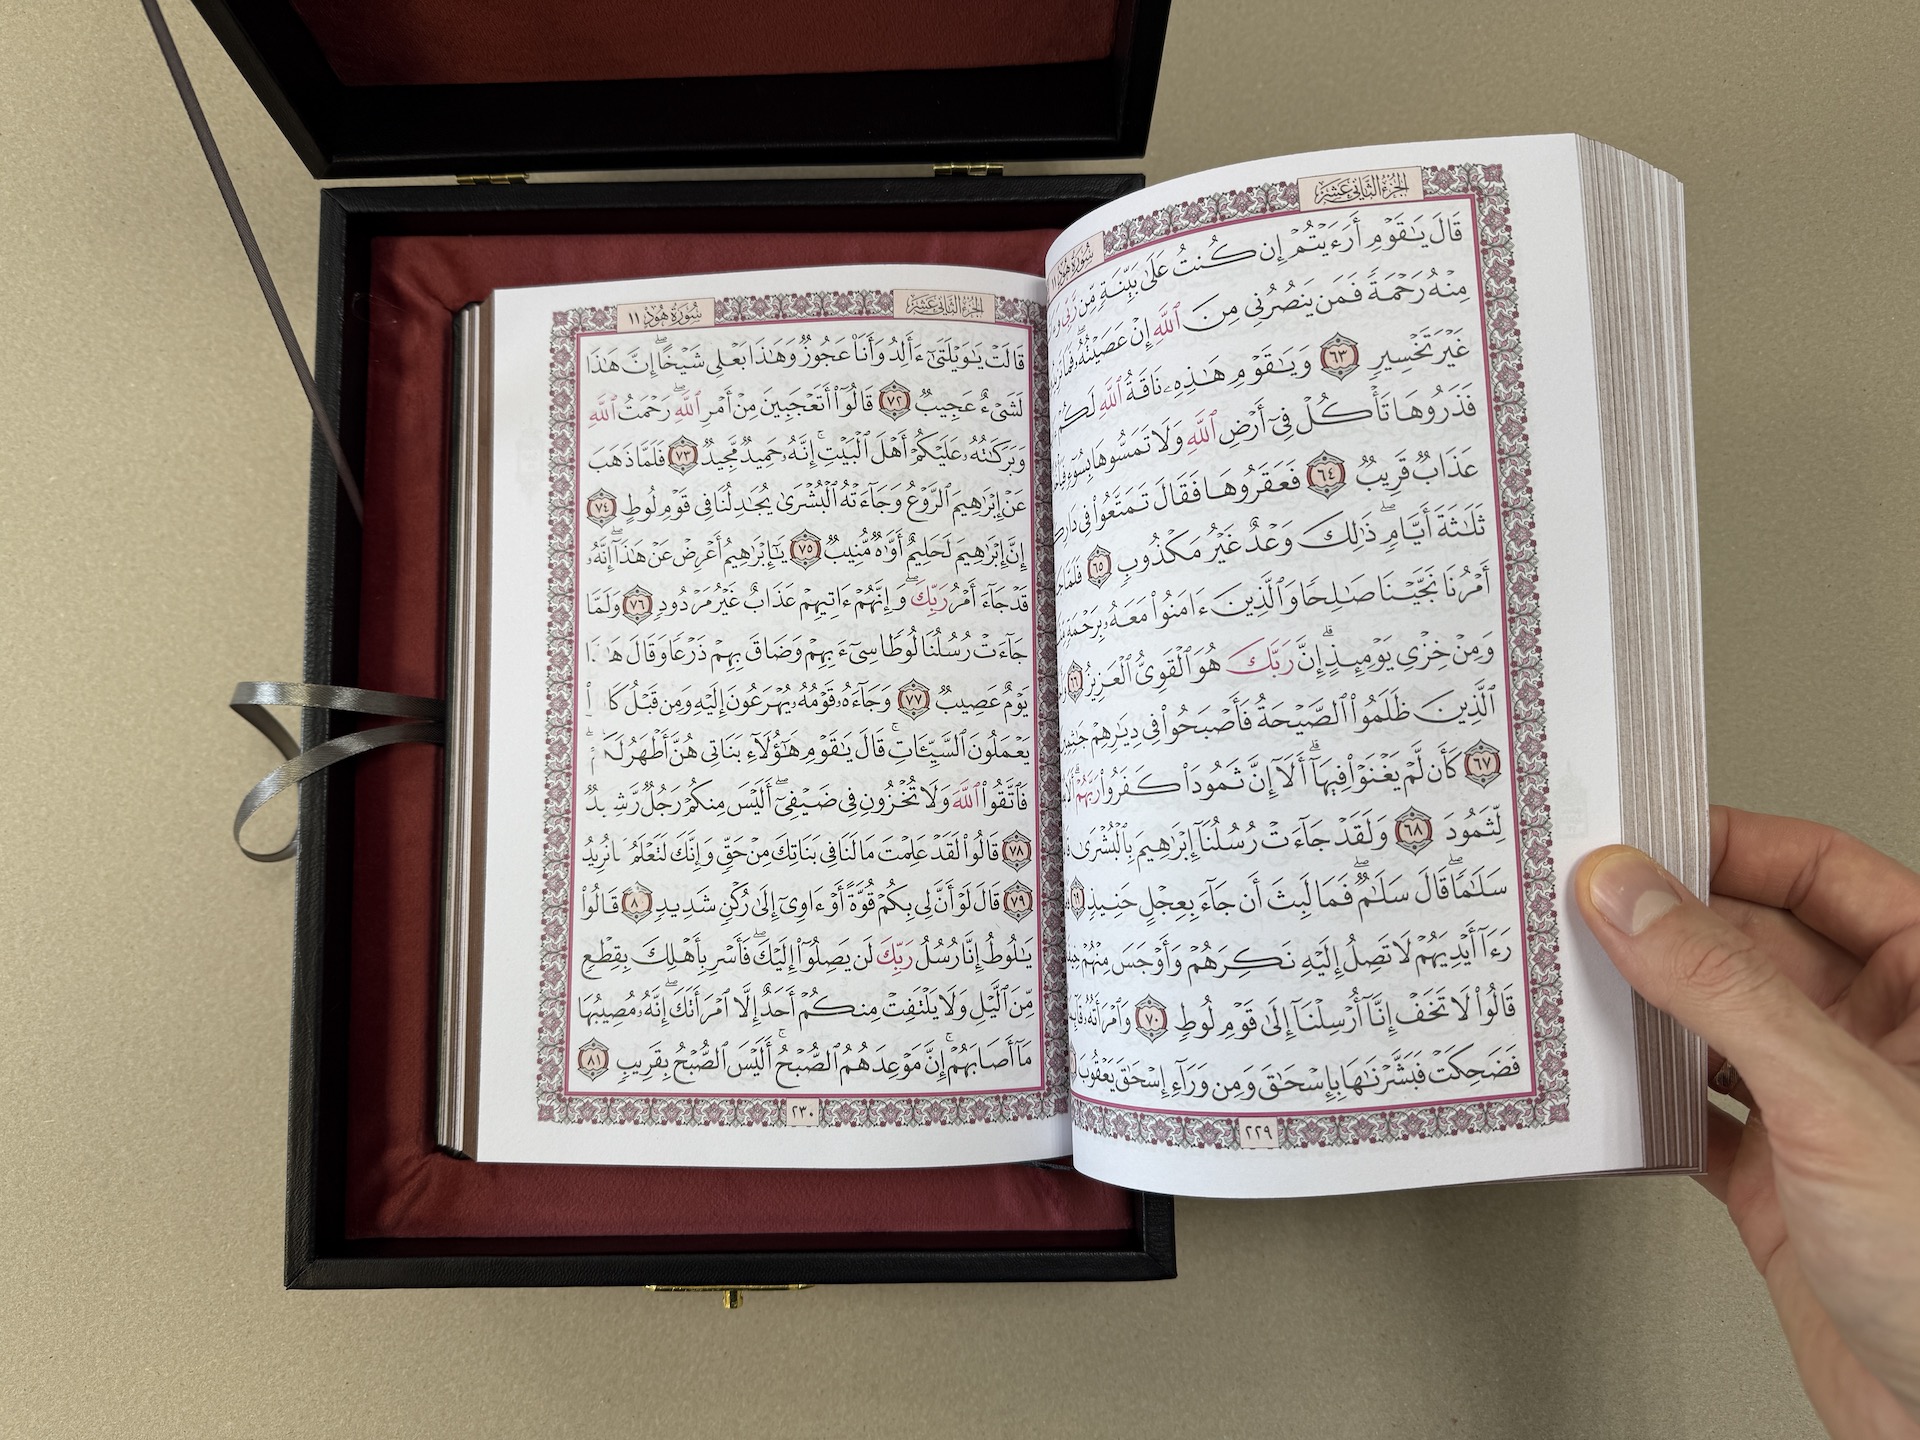 الجُزْءُ الثَّانِي عَشَرَ
سُورَةُ هُودٍ ١١
قَالَ يَٰقَوْمِ أَرَءَيْتُمْ إِن كُنتُ عَلَىٰ بَيِّنَةٍ مِّن رَّبِّى
مِنْهُ رَحْمَةً فَمَن يَنصُرُنِى مِنَ ٱللَّهِ إِنْ عَصَيْتُهُۥ فَمَا
غَيْرَ تَخْسِيرٍ ٦٣ وَيَٰقَوْمِ هَٰذِهِۦ نَاقَةُ ٱللَّهِ لَكُمْ
فَذَرُوهَا تَأْكُلْ فِىٓ أَرْضِ ٱللَّهِ وَلَا تَمَسُّوهَا بِسُوٓءٍ
عَذَابٌ قَرِيبٌ ٦٤ فَعَقَرُوهَا فَقَالَ تَمَتَّعُوا۟ فِى
ثَلَٰثَةَ أَيَّامٍ ۖ ذَٰلِكَ وَعْدٌ غَيْرُ مَكْذُوبٍ ٦٥ فَلَمَّا
أَمْرُنَا نَجَّيْنَا صَٰلِحًا وَٱلَّذِينَ ءَامَنُوا۟ مَعَهُۥ بِرَحْمَةٍ
وَمِنْ خِزْىِ يَوْمِئِذٍ ۗ إِنَّ رَبَّكَ هُوَ ٱلْقَوِىُّ ٱلْعَزِيزُ ٦٦
ٱلَّذِينَ ظَلَمُوا۟ ٱلصَّيْحَةُ فَأَصْبَحُوا۟ فِى دِيَٰرِهِمْ
٦٧ كَأَن لَّمْ يَغْنَوْا۟ فِيهَآ ۗ أَلَآ إِنَّ ثَمُودَا۟ كَفَرُوا۟ رَبَّهُمْ
لِّثَمُودَ ٦٨ وَلَقَدْ جَآءَتْ رُسُلُنَآ إِبْرَٰهِيمَ بِٱلْبُشْرَىٰ
سَلَٰمًا ۖ قَالَ سَلَٰمٌ ۖ فَمَا لَبِثَ أَن جَآءَ بِعِجْلٍ حَنِيذٍ ٦٩
رَءَآ أَيْدِيَهُمْ لَا تَصِلُ إِلَيْهِ نَكِرَهُمْ وَأَوْجَسَ مِنْهُمْ
قَالُوا۟ لَا تَخَفْ إِنَّآ أُرْسِلْنَآ إِلَىٰ قَوْمِ لُوطٍ ٧٠ وَٱمْرَأَتُهُۥ
فَضَحِكَتْ فَبَشَّرْنَٰهَا بِإِسْحَٰقَ وَمِن وَرَآءِ إِسْحَٰقَ يَعْقُوبَ
٢٢٩
الجُزْءُ الثَّانِي عَشَرَ
سُورَةُ هُودٍ ١١
قَالَتْ يَٰوَيْلَتَىٰٓ ءَأَلِدُ وَأَنَا۠ عَجُوزٌ وَهَٰذَا بَعْلِى شَيْخًا ۖ إِنَّ هَٰذَا
لَشَىْءٌ عَجِيبٌ ٧٢ قَالُوٓا۟ أَتَعْجَبِينَ مِنْ أَمْرِ ٱللَّهِ ۖ رَحْمَتُ ٱللَّهِ
وَبَرَكَٰتُهُۥ عَلَيْكُمْ أَهْلَ ٱلْبَيْتِ ۚ إِنَّهُۥ حَمِيدٌ مَّجِيدٌ ٧٣ فَلَمَّا ذَهَبَ
عَنْ إِبْرَٰهِيمَ ٱلرَّوْعُ وَجَآءَتْهُ ٱلْبُشْرَىٰ يُجَٰدِلُنَا فِى قَوْمِ لُوطٍ ٧٤
إِنَّ إِبْرَٰهِيمَ لَحَلِيمٌ أَوَّٰهٌ مُّنِيبٌ ٧٥ يَٰٓإِبْرَٰهِيمُ أَعْرِضْ عَنْ هَٰذَآ ۖ إِنَّهُۥ
قَدْ جَآءَ أَمْرُ رَبِّكَ ۖ وَإِنَّهُمْ ءَاتِيهِمْ عَذَابٌ غَيْرُ مَرْدُودٍ ٧٦ وَلَمَّا
جَآءَتْ رُسُلُنَا لُوطًا سِىٓءَ بِهِمْ وَضَاقَ بِهِمْ ذَرْعًا وَقَالَ
يَوْمٌ عَصِيبٌ ٧٧ وَجَآءَهُۥ قَوْمُهُۥ يُهْرَعُونَ إِلَيْهِ وَمِن قَبْلُ
يَعْمَلُونَ ٱلسَّيِّـَٔاتِ ۚ قَالَ يَٰقَوْمِ هَٰٓؤُلَآءِ بَنَاتِى هُنَّ أَطْهَرُ
فَٱتَّقُوا۟ ٱللَّهَ وَلَا تُخْزُونِ فِى ضَيْفِىٓ ۖ أَلَيْسَ مِنكُمْ رَجُلٌ رَّشِيدٌ
٧٨ قَالُوا۟ لَقَدْ عَلِمْتَ مَا لَنَا فِى بَنَاتِكَ مِنْ حَقٍّ وَإِنَّكَ لَتَعْلَمُ مَا نُرِيدُ
٧٩ قَالَ لَوْ أَنَّ لِى بِكُمْ قُوَّةً أَوْ ءَاوِىٓ إِلَىٰ رُكْنٍ شَدِيدٍ ٨٠ قَالُوا۟
يَٰلُوطُ إِنَّا رُسُلُ رَبِّكَ لَن يَصِلُوٓا۟ إِلَيْكَ ۖ فَأَسْرِ بِأَهْلِكَ بِقِطْعٍ
مِّنَ ٱلَّيْلِ وَلَا يَلْتَفِتْ مِنكُمْ أَحَدٌ إِلَّا ٱمْرَأَتَكَ ۖ إِنَّهُۥ مُصِيبُهَا
مَآ أَصَابَهُمْ ۚ إِنَّ مَوْعِدَهُمُ ٱلصُّبْحُ ۚ أَلَيْسَ ٱلصُّبْحُ بِقَرِيبٍ ٨١
٢٣٠